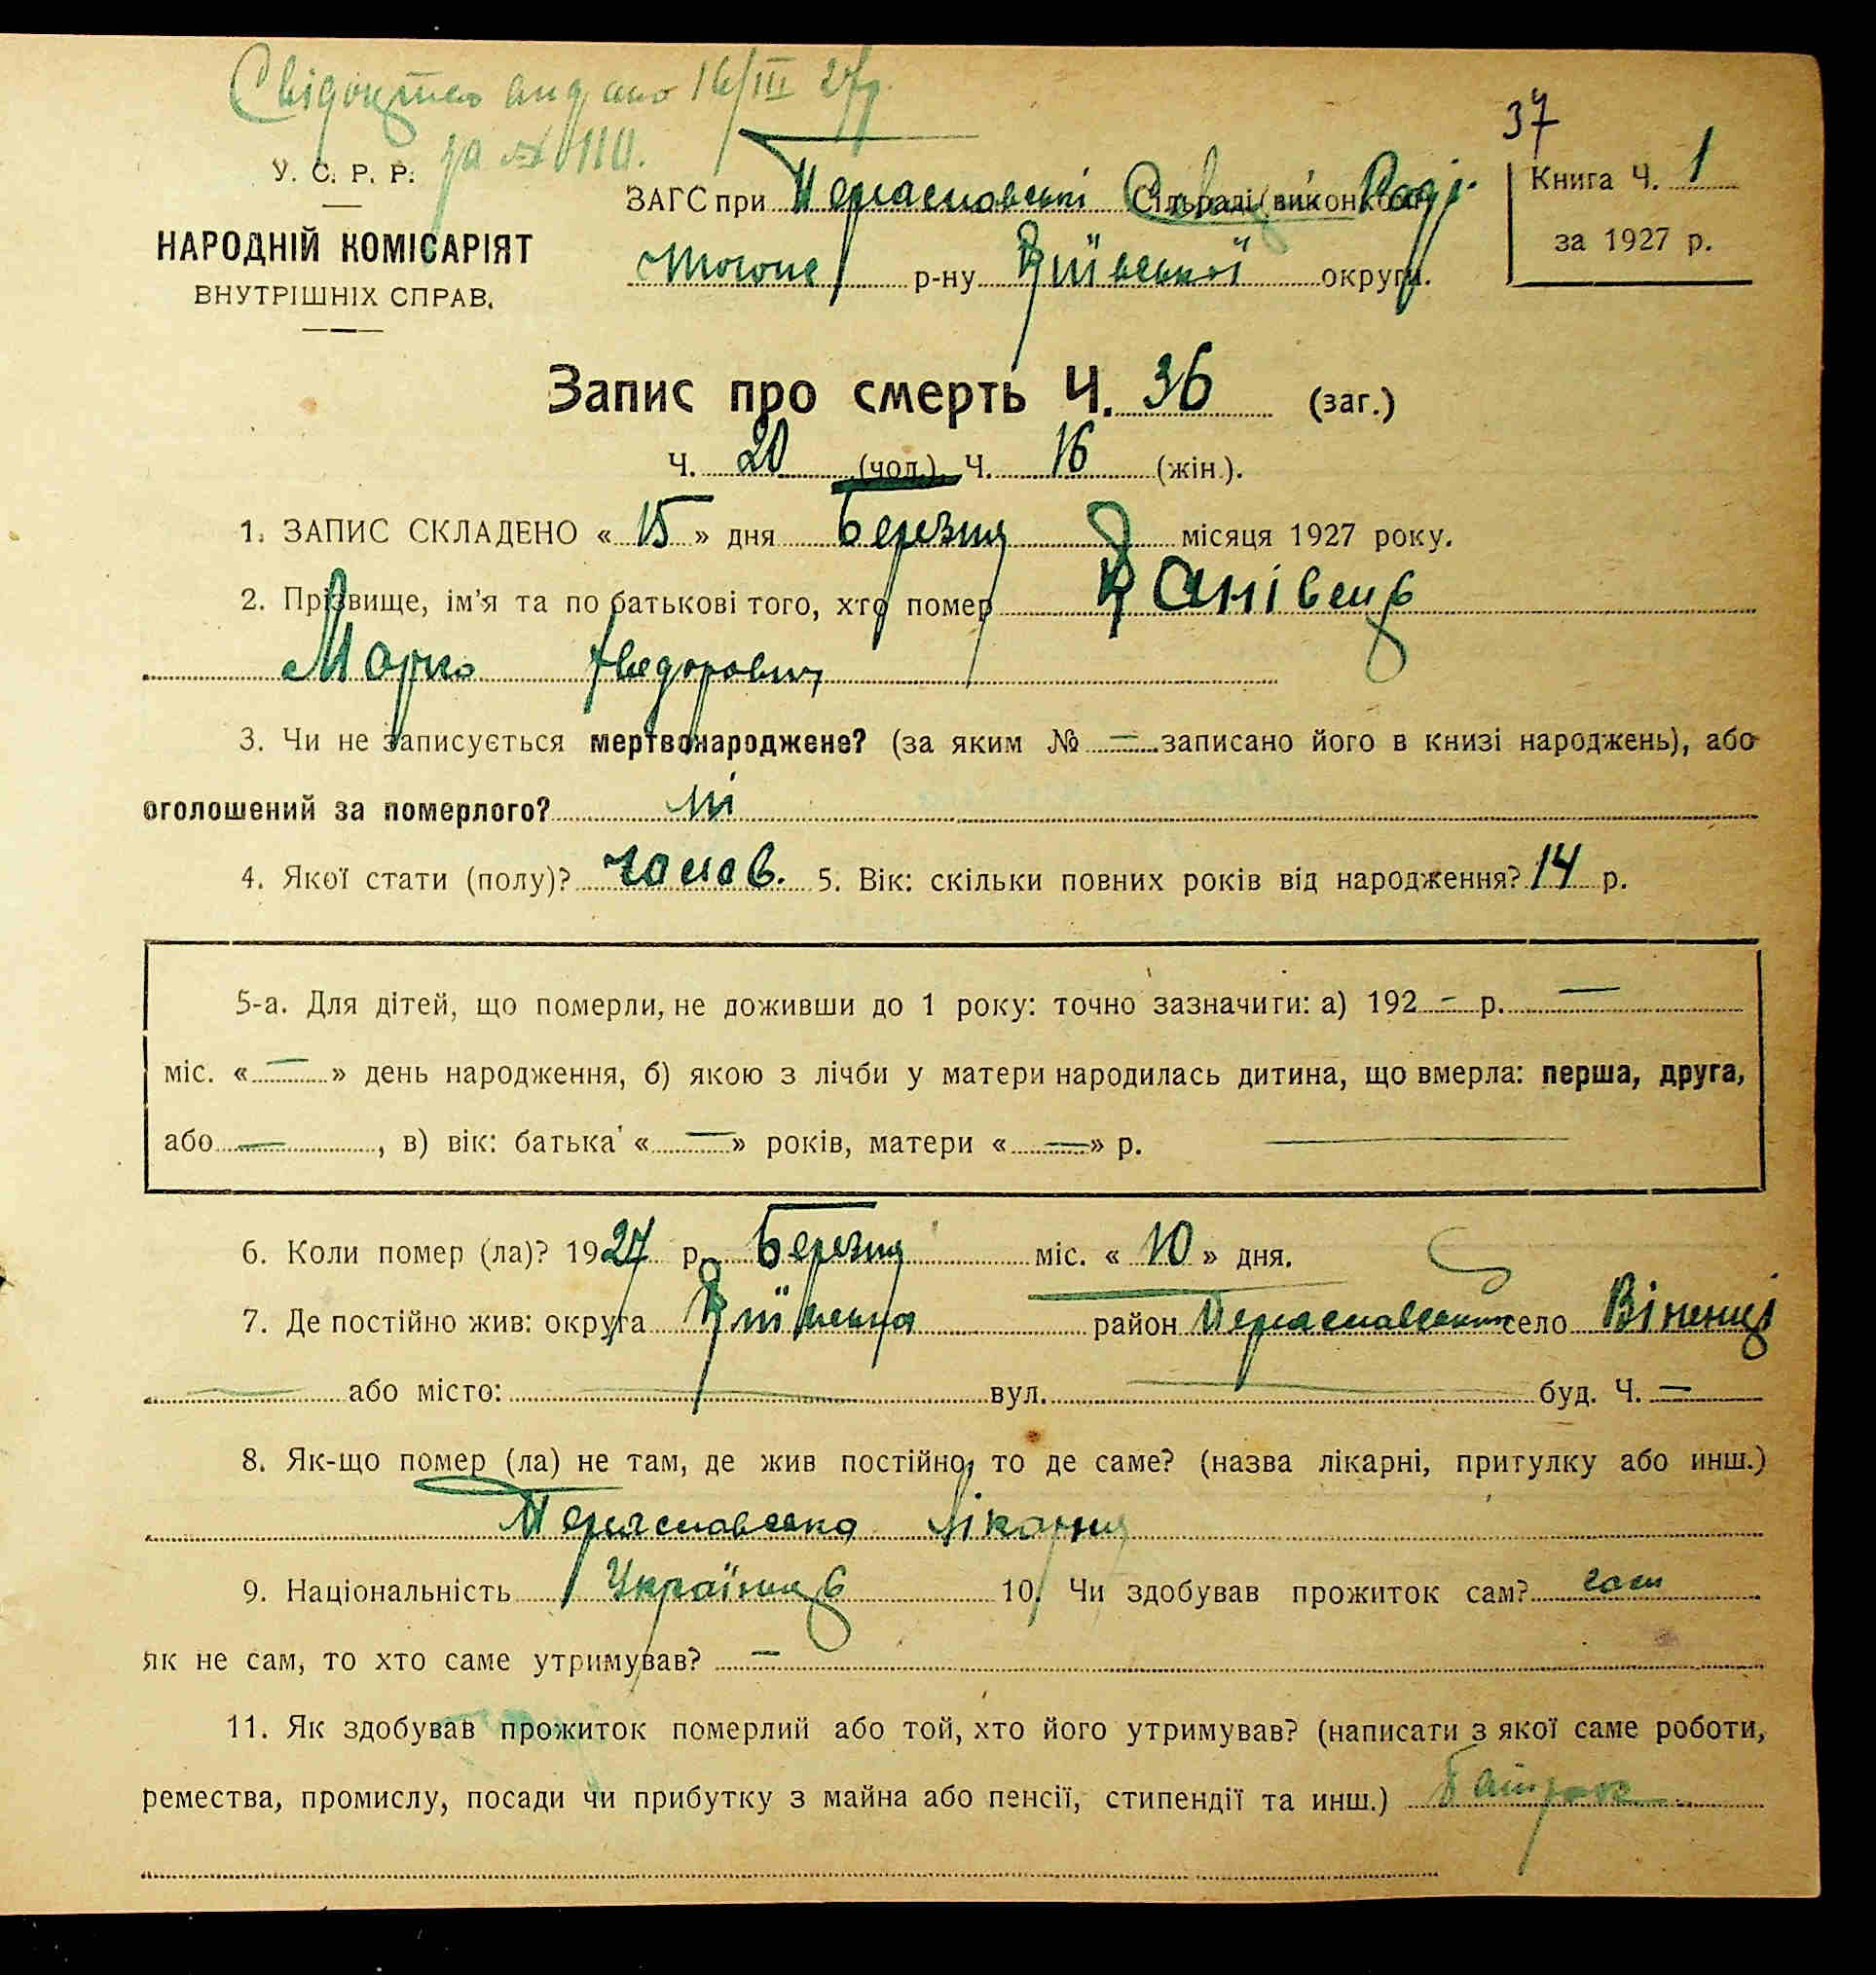 Свідоцтво видано 16/III 27 р.
за № 110.
37
У. С. Р. Р.
НАРОДНІЙ КОМІСАРІЯТ
ВНУТРІШНІХ СПРАВ.
ЗАГС при Переяславській Раді
р-ну Київської округи.
Книга Ч. 1
за 1927 р.
Запис про смерть Ч. 36 (заг.)
Ч. 20 (чол.) Ч. 16 (жін.).
1. ЗАПИС СКЛАДЕНО « 15 » дня Березня місяця 1927 року.
2. Прізвище, ім'я та по батькові того, хто помер Канівець
Марко Федорович
3. Чи не записується мертвонароджене? (за яким № — записано його в книзі народжень), або
оголошений за померлого? ні
4. Якої стати (полу)? чолов. 5. Вік: скільки повних років від народження? 14 р.
5-а. Для дітей, що померли, не доживши до 1 року: точно зазначити: а) 192 — р. —
міс. « — » день народження, б) якою з лічби у матери народилась дитина, що вмерла: перша, друга,
або — , в) вік: батька « — » років, матери « — » р. —
6. Коли помер (ла)? 1927 р. Березня міс. « 10 » дня.
7. Де постійно жив: округа Київська район Переяславський село Віненці
— або місто: — вул. — буд. Ч. —
8. Як-що помер (ла) не там, де жив постійно, то де саме? (назва лікарні, притулку або инш.)
Переяславська лікарня
9. Національність Українець 10. Чи здобував прожиток сам? сам
як не сам, то хто саме утримував? —
11. Як здобував прожиток померлий або той, хто його утримував? (написати з якої саме роботи,
ремества, промислу, посади чи прибутку з майна або пенсії, стипендії та инш.) Батрак